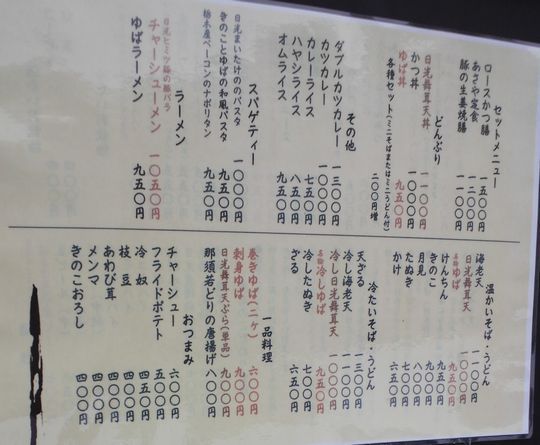 セットメニュー
ロースかつ膳 一五〇〇円
あさや定食 一二〇〇円
豚の生姜焼膳 一一〇〇円
どんぶり
日光舞茸天丼 一一〇〇円
かつ丼 一〇〇〇円
ゆば丼 九五〇円
各種セット(ミニそばまたはミニうどん付) 二〇〇円増
その他
ダブルカツカレー 一三〇〇円
カツカレー 一〇〇〇円
カレーライス 七五〇円
ハヤシライス 八五〇円
オムライス 九五〇円
スパゲティー
日光まいたけののパスタ 一〇〇〇円
きのことゆばの和風パスタ 九五〇円
栃木屋ベーコンのナポリタン 九五〇円
ラーメン
日光ヒミツ豚の豚バラ
チャーシューメン 一〇五〇円
ゆばラーメン 九五〇円
温かいそば・うどん
海老天 一一〇〇円
日光舞茸天 一〇〇〇円
名物ゆば 九五〇円
けんちん 九五〇円
きのこ 九〇〇円
月見 八〇〇円
たぬき 七〇〇円
かけ 六五〇円
冷たいそば・うどん
天ざる 一三〇〇円
冷し海老天 一一〇〇円
冷し日光舞茸天 一〇〇〇円
名物冷しゆば 九五〇円
冷したぬき 七〇〇円
ざる 六五〇円
一品料理
巻きゆば(二ケ) 六〇〇円
刺身ゆば 九〇〇円
日光舞茸天ぷら(単品) 九〇〇円
那須若どりの唐揚げ 八〇〇円
おつまみ
チャーシュー 六〇〇円
フライドポテト 五〇〇円
冷奴 四五〇円
枝豆 四〇〇円
あわび茸 四〇〇円
メンマ 四〇〇円
きのこおろし 四〇〇円